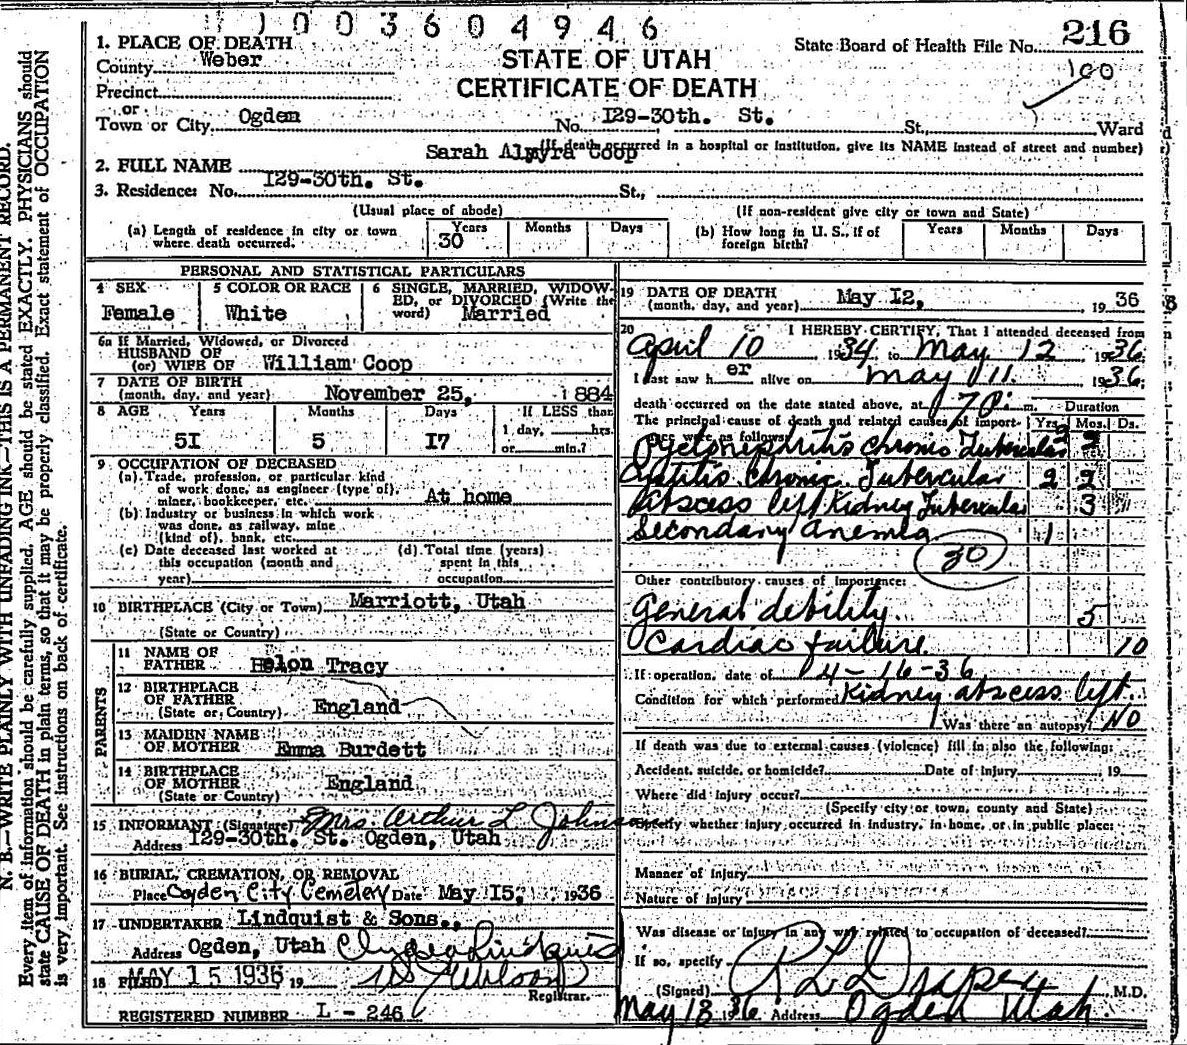 1003604946
N. B.—WRITE PLAINLY WITH UNFADING INK—THIS IS A PERMANENT RECORD.
Every item of information should be carefully supplied. AGE should be stated EXACTLY. PHYSICIANS should
state CAUSE OF DEATH in plain terms, so that it may be properly classified. Exact statement of OCCUPATION
is very important. See instructions on back of certificate.
STATE OF UTAH
CERTIFICATE OF DEATH
State Board of Health File No. 216
100
1. PLACE OF DEATH
County Weber
Precinct
or
Town or City Ogden No. I29-30th. St. St., Ward
(If death occurred in a hospital or institution, give its NAME instead of street and number)
2. FULL NAME Sarah Almyra Coop
3. Residence: No. I29-30th. St. St.,
(Usual place of abode) (If non-resident give city or town and State)
(a) Length of residence in city or town where death occurred. Years 30 Months Days
(b) How long in U. S., if of foreign birth? Years Months Days
PERSONAL AND STATISTICAL PARTICULARS
4 SEX Female
5 COLOR OR RACE White
6 SINGLE, MARRIED, WIDOWED, or DIVORCED (Write the word) Married
6a If Married, Widowed, or Divorced
HUSBAND OF
(or) WIFE OF William Coop
7 DATE OF BIRTH
(month, day, and year) November 25, 1884
8 AGE Years Months Days If LESS than
5I 5 I7 1 day, hrs.
or min.?
9 OCCUPATION OF DECEASED
(a) Trade, profession, or particular kind
of work done, as engineer (type of),
miner, bookkeeper, etc. At home
(b) Industry or business in which work
was done, as railway, mine
(kind of), bank, etc.
(c) Date deceased last worked at
this occupation (month and
year)
(d) Total time (years)
spent in this
occupation
10 BIRTHPLACE (City or Town) Marriott, Utah
(State or Country)
PARENTS
11 NAME OF
FATHER Helon Tracy
12 BIRTHPLACE
OF FATHER
(State or Country) England
13 MAIDEN NAME
OF MOTHER Emma Burdett
14 BIRTHPLACE
OF MOTHER England
(State or Country)
15 INFORMANT (Signature) Mrs. Arthur L Johnson
Address I29-30th. St. Ogden, Utah
16 BURIAL, CREMATION, OR REMOVAL
Place Ogden City Cemetery Date May I5, 1936
17 UNDERTAKER Lindquist & Sons.,
Address Ogden, Utah Clyde Lindquist
18 FILED MAY 15 1936 19 Wilson
Registrar.
REGISTERED NUMBER L - 246
19 DATE OF DEATH
(month, day, and year) May I2, 1936
20 I HEREBY CERTIFY, That I attended deceased from
April 10 1934 to May 12 1936
I last saw her alive on May 11. 1936
death occurred on the date stated above, at 7 P. m. Duration
The principal cause of death and related causes of importance were as follows: Yrs. Mos. Ds.
Pyelonephritis Chronic Tubercular 2 2
Cystitis Chronic Tubercular 2 2
Abscess left Kidney Tubercular 3
Secondary anemia 1
30
Other contributory causes of importance:
General debility 5
Cardiac failure 10
If operation, date of 4-16-36
Condition for which performed Kidney abscess left.
Was there an autopsy? No
If death was due to external causes (violence) fill in also the following:
Accident, suicide, or homicide? Date of injury , 19
Where did injury occur?
(Specify city or town, county and State)
Specify whether injury occurred in industry, in home, or in public place:
Manner of Injury
Nature of Injury
Was disease or injury in any way related to occupation of deceased?
If so, specify
(Signed) R L Draper M.D.
May 13 1936 Address Ogden Utah.